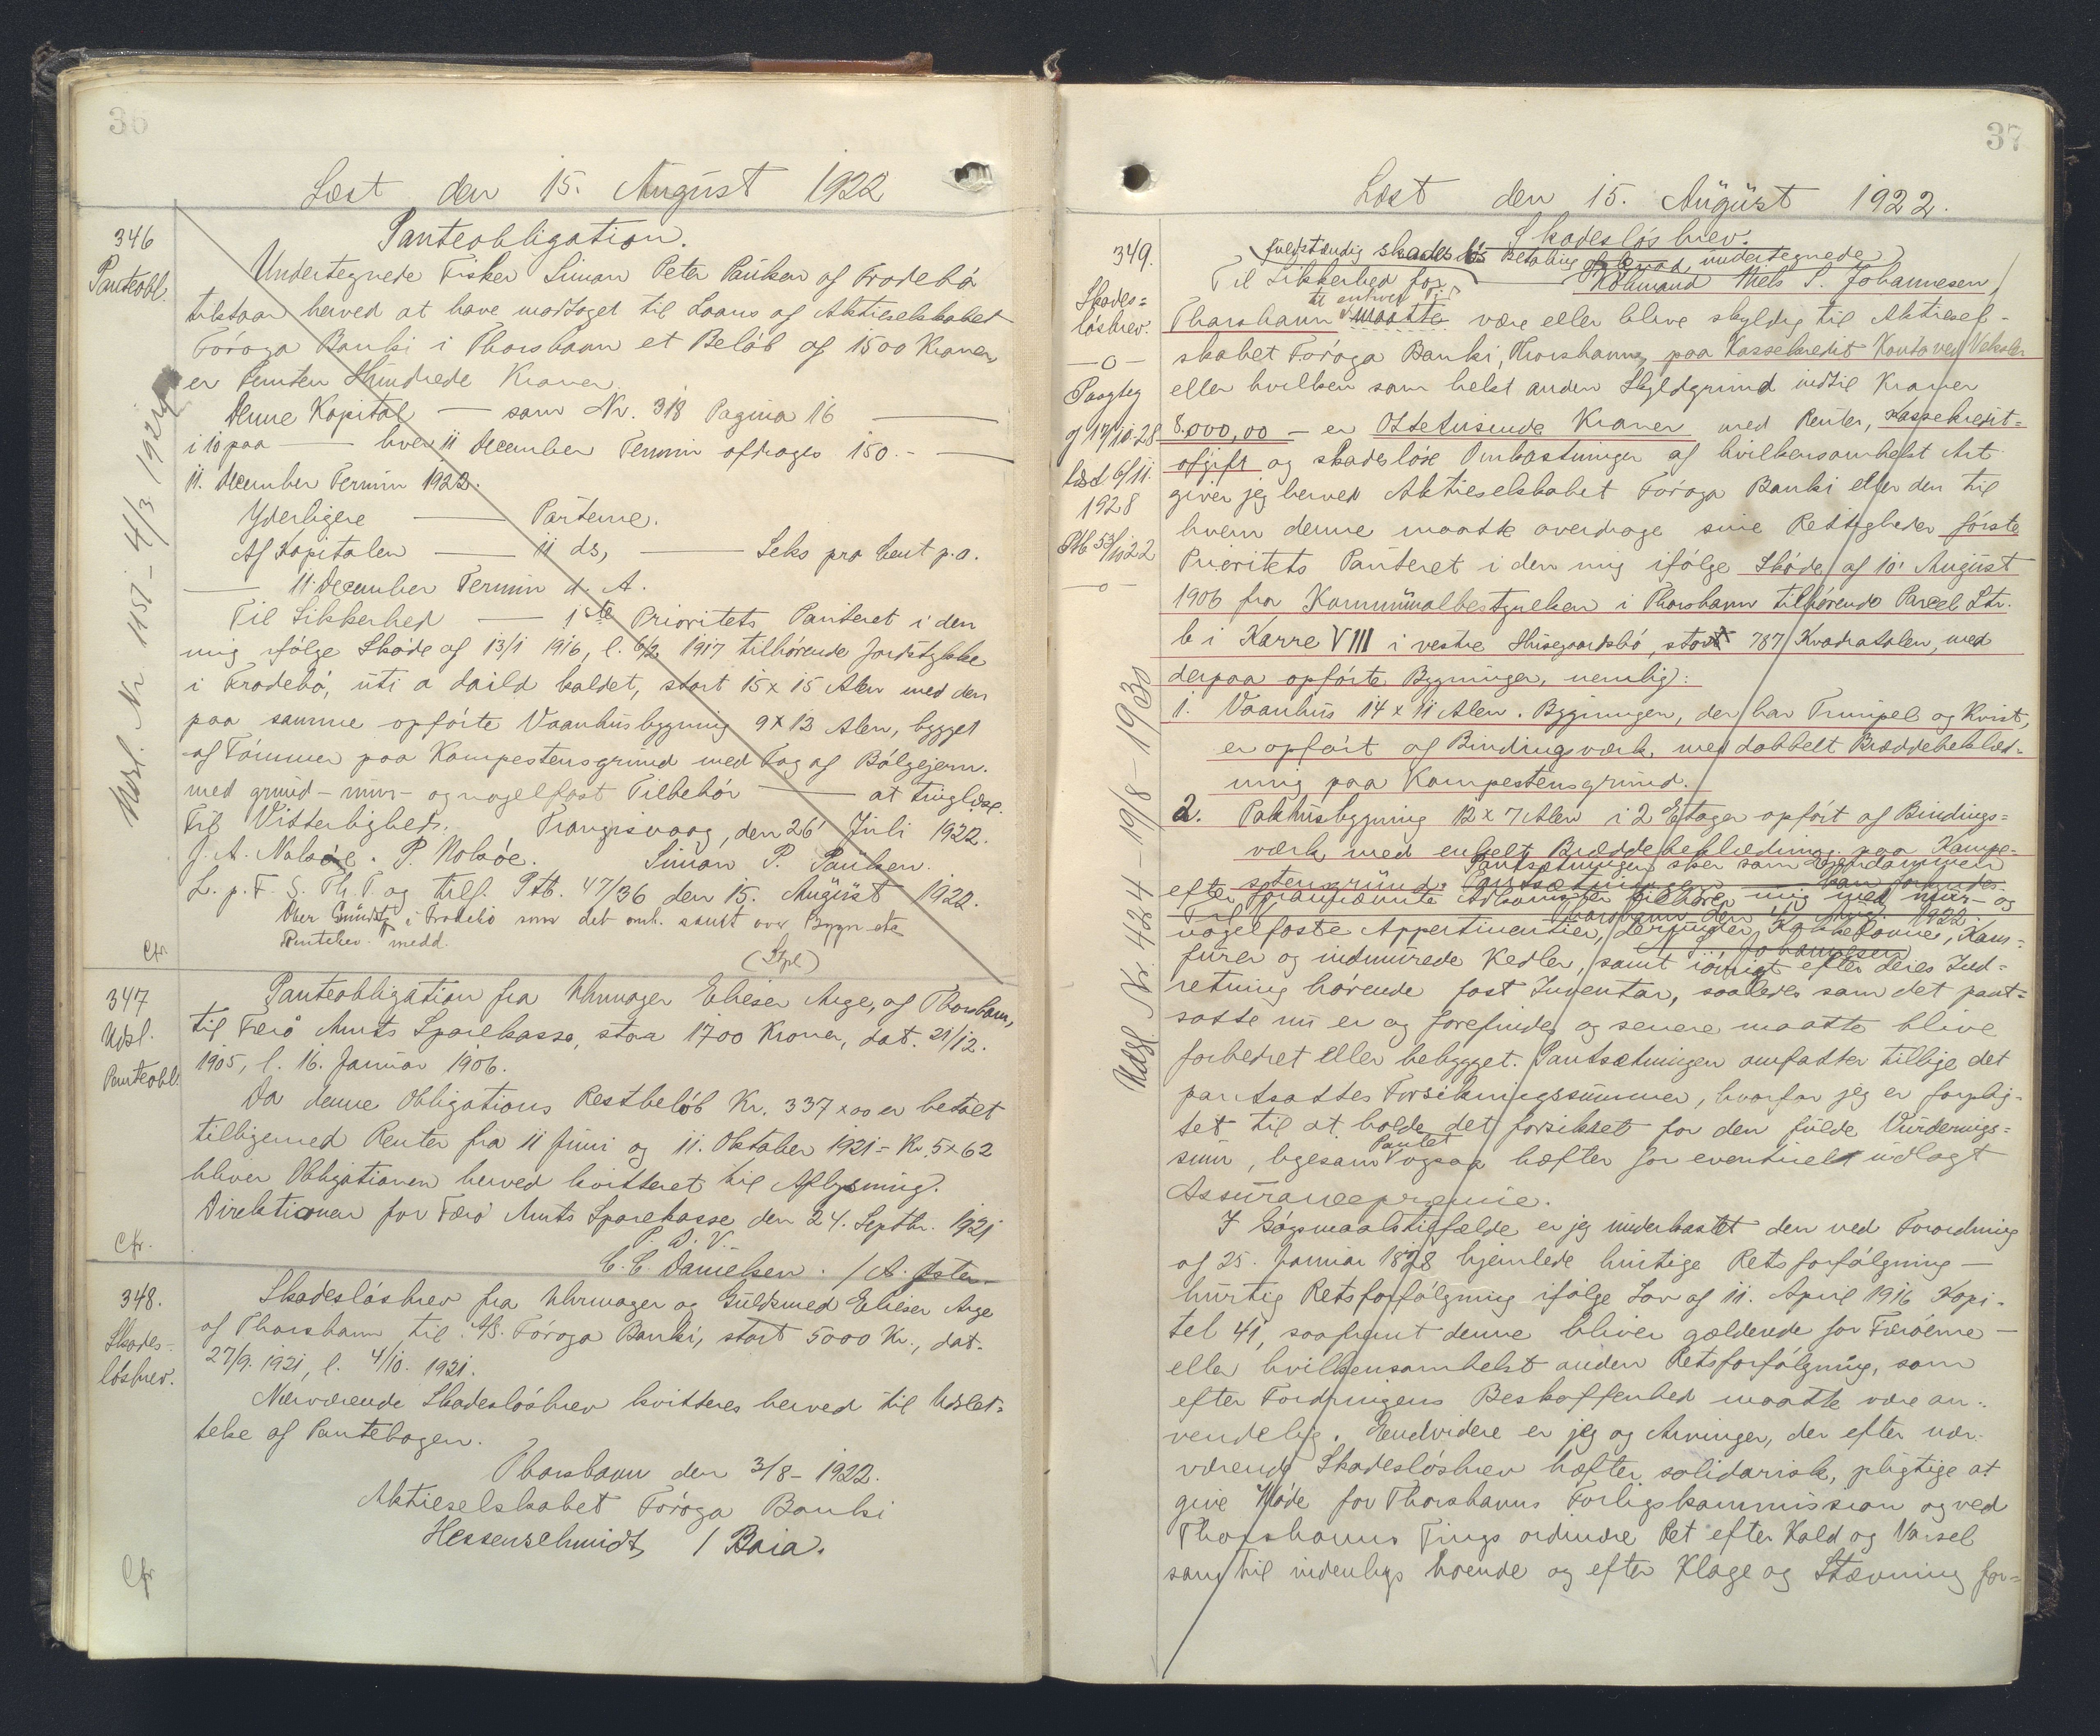 36
Læst den 15. August 1922
346
Panteobl.
Panteobligation.
Undertegnede Fisker Simon Peter Paulsen af Frodebø
tilstaar herved at have modtaget til Laans af Aktieselskabet
Føroya Banki i Thorshavn et Beløb af 1500 Kroner,
er femten Hundrede Kroner.
Denne Kapital — som Nr. 318 Pagina 16 —
i 10 paa — hver 11 December Termin afdrages 150.- —
11. December Termin 1922.
Yderligere — Parterne.
Af Kapitalen — 11 ds, — Seks pro Cent p.a.
— 11 December Termin d. A.
Til Sikkerhed — 1ste Prioritets Panteret i den
mig ifølge Skøde af 13/1 1916, l. 6/2 1917 tilhørende Jordstykke
i Frodebø, uti a daild kaldet, stort 15 x 15 Alen med den
paa samme opførte Vaanhusbygning 9 x 13 Alen, bygget
af Tømmer paa Kampestensgrund med Tag af Bølgejern.
med grund- mur- og nagelfast Tilbehør — at tinglæse.
Til Vitterlighed. Trangisvaag, den 26' Juli 1922.
J. A. Nolsøe. P. Nolsøe. Simon P. Paulsen.
L. p. F. S. Th. T. og tilf. Ptb. 47/36 den 15. August 1922.
Over Grundst. i Frodebø
medd.
(Stpl)
Cfr.
Udsl. Nr 1151 - 4/3 192
347
Udsl.
Panteobl.
Panteobligation fra Uhrmager Elieser Arge, af Thorshavn,
til Færø Amts Sparekasse, stor 1700 Kroner, dat. 21/12.
1905, l. 16. Januar 1906.
Da denne Obligations Restbeløb Kr. 337 x 00 er betalt
tilligemed Renter fra 11 Juni og 11. Oktober 1921 = Kr. 5 x 62
bliver Obligationen herved kvitteret til Aflysning.
Direktionen for Færø Amts Sparekasse den 24. Septbr. 1921
P. D. V.
C. C. Danielsen. / A. Øster
Cfr.
348.
Skades-
løsbrev.
Skadesløsbrev fra Uhrmager og Guldsmed Elieser Arge
af Thorshavn til A/S. Føroya Banki, stort 5000 Kr., dat.
27/9. 1921, l. 4/10. 1921.
Nærværende Skadesløsbrev kvitteres herved til Udslet-
telse af Pantebogen.
Thorshavn den 3/8 - 1922.
Aktieselskabet Føroya Banki
Hessenschmidt / Baia.
Cfr
37
Læst den 15. August 1922.
349.
Skades=
løsbrev.
—o—
Paategn
af 17/10.28
læst 6/11.
1928
Ptb 53/1122
—o—
Skadesløsbrev.
fuldstændig skadesløs Betaling af hvad undertegnede
Til Sikkerhed for Købmand Niels S. Johannesen,
til enhver Tid
Thorshavn maatte være eller blive skyldig til Aktiesel-
skabet Føroya Banki, Thorshavn, paa Kassekredit Konto ved Veksler
eller hvilken som helst anden Skyldgrund indtil Kroner
8.000,00 - er Ottetusinde Kroner med Renter, Kassekredit=
afgift og skadesløse Omkostninger af hvilkensomhelst Art
giver jeg herved Aktieselskabet Føroya Banki eller den til
hvem denne maatte overdrage sine Rettigheder første
Prioritets Panteret i den mig ifølge Skøde af 10' August
1906 fra Kommunalbestyrelsen i Thorshavn tilhørende Parcel Ltr.
b i Karre VIII i vestre Husegaardsbø, stort 787 Kvadratalen, med
derpaa opførte Bygninger, nemlig:
1. Vaanhus 14 x 11 Alen. Bygningen, der har Trempel og Kvist,
er opført af Bindingsværk med dobbelt Bræddebeklæd-
ning paa Kampestensgrund.
2. Pakhusbygning 12 x 7 Alen i 2 Etager opført af Bindings=
værk med enkelt Bræddebeklædning paa Kampe-
stensgrund. Pantsætningen sker som Ejendommen
efter foranførte Adkomster tilhører mig med mur- og
Thorshavn den 4/8 Aug. 1922.
nagelfaste Appertinentier, derunder Kakkelovne, Kom=
N. S. Johannesen
furer og indmurede Kedler, samt iøvrigt efter deres Ind=
retning hørende fast Inventar, saaledes som det pant=
satte nu er og forefindes og senere maatte blive
forbedret eller bebygget. Pantsætningen omfatter tillige det
pantsattes Forsikringssummer, hvorfor jeg er forplig-
tet til at holde det forsikret for den fulde Vurderings=
sum, ligesom Pantet ogsaa hæfter for eventuelt udlagt
Assurancepræmie.
I Søgsmaalstilfælde er jeg underkastet den ved Forordning
af 25. Januar 1828 hjemlede hurtige Retsforfølgning —
hurtig Retsforfølgning ifølge Lov af 11. April 1916 Kapi-
tel 41, saafremt denne bliver gældende for Færøerne —
eller hvilkensomhelst anden Retsforfølgning, som
efter Fordringens Beskaffenhed maatte være an-
vendelig. Endvidere er jeg og Arvinger, der efter nær-
værende Skadesløsbrev hæfter solidarisk, pligtige at
give Møde for Thorshavns Forligskommission og ved
Thorshavns Tings ordinære Ret efter Kald og Varsel
som til indenbys boende og efter Klage og Stævning for=
Udsl Nr. 424 - 19/8 - 1930